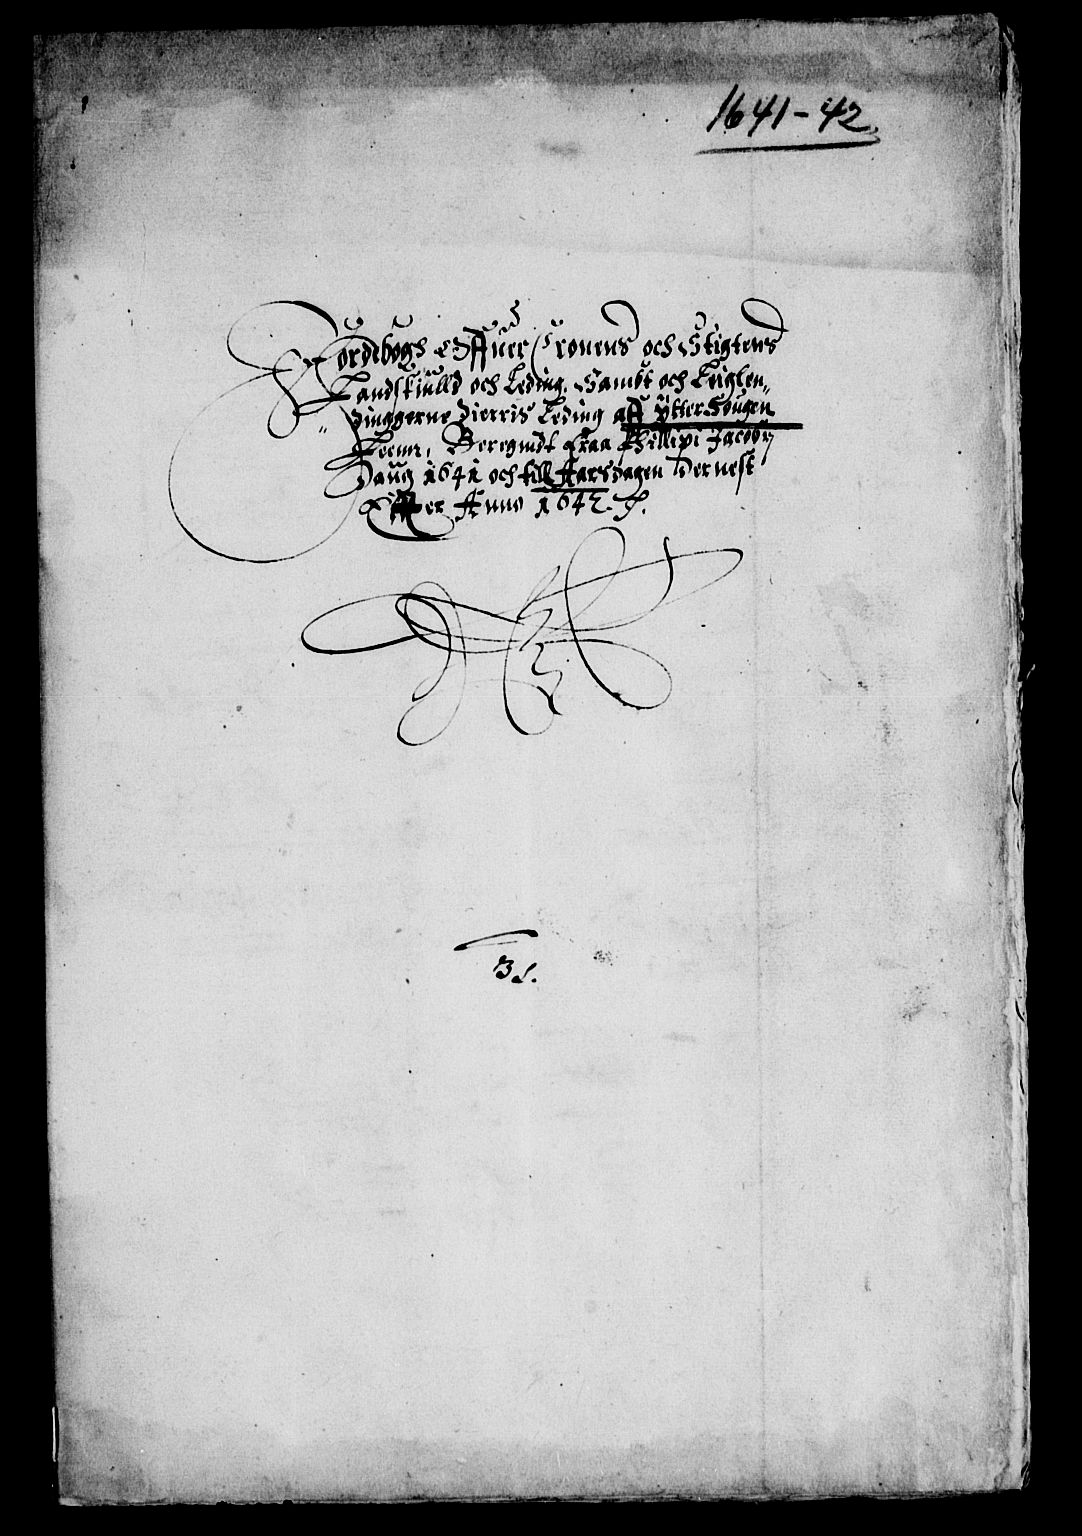 1641-42
Jordebogh Offuer Cronens och Stigtens
Landskiulld och Leding, Sambt och Leiglen„
„dinggerne Dierris Leding aff Ytter Sougen
Leenn, Beregnidt fraa Phillipi Jacobj
Daug 1641 och till Aarsdagen Dernest
Effter Anno 1642.